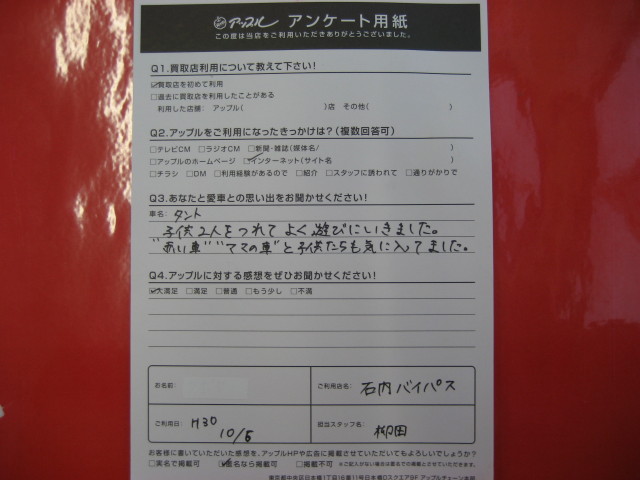 アップル アンケート用紙
この度は当店をご利用いただきありがとうございました。
Q1.買取店利用について教えて下さい!
☑買取店を初めて利用
□過去に買取店を利用したことがある
利用した店舗: アップル( )店 その他( )
Q2.アップルをご利用になったきっかけは?(複数回答可)
□テレビCM □ラジオCM □新聞・雑誌(媒体名/ )
□アップルのホームページ ☑インターネット(サイト名 )
□チラシ □DM □利用経験があるので □紹介 □スタッフに誘われて □通りがかりで
Q3.あなたと愛車との思い出をお聞かせください!
車名: タント
子供2人をつれてよく遊びにいきました。
"あい車""ママの車"と子供たちも気に入てました。
Q4.アップルに対する感想をぜひお聞かせください!
☑大満足 □満足 □普通 □もう少し □不満
お名前
ご利用店名: 石内バイパス
ご利用日: H30 10/6
担当スタッフ名: 柳田
お客様に書いていただいた感想を、アップルHPや広告に掲載させていただいてもよろしいでしょうか?
□実名で掲載可 ☑匿名なら掲載可 □掲載不可 ※ご記入がない場合は匿名での掲載とさせていただきます。
東京都中央区日本橋1丁目16番11号日本橋DスクエアBF アップルチェーン本部